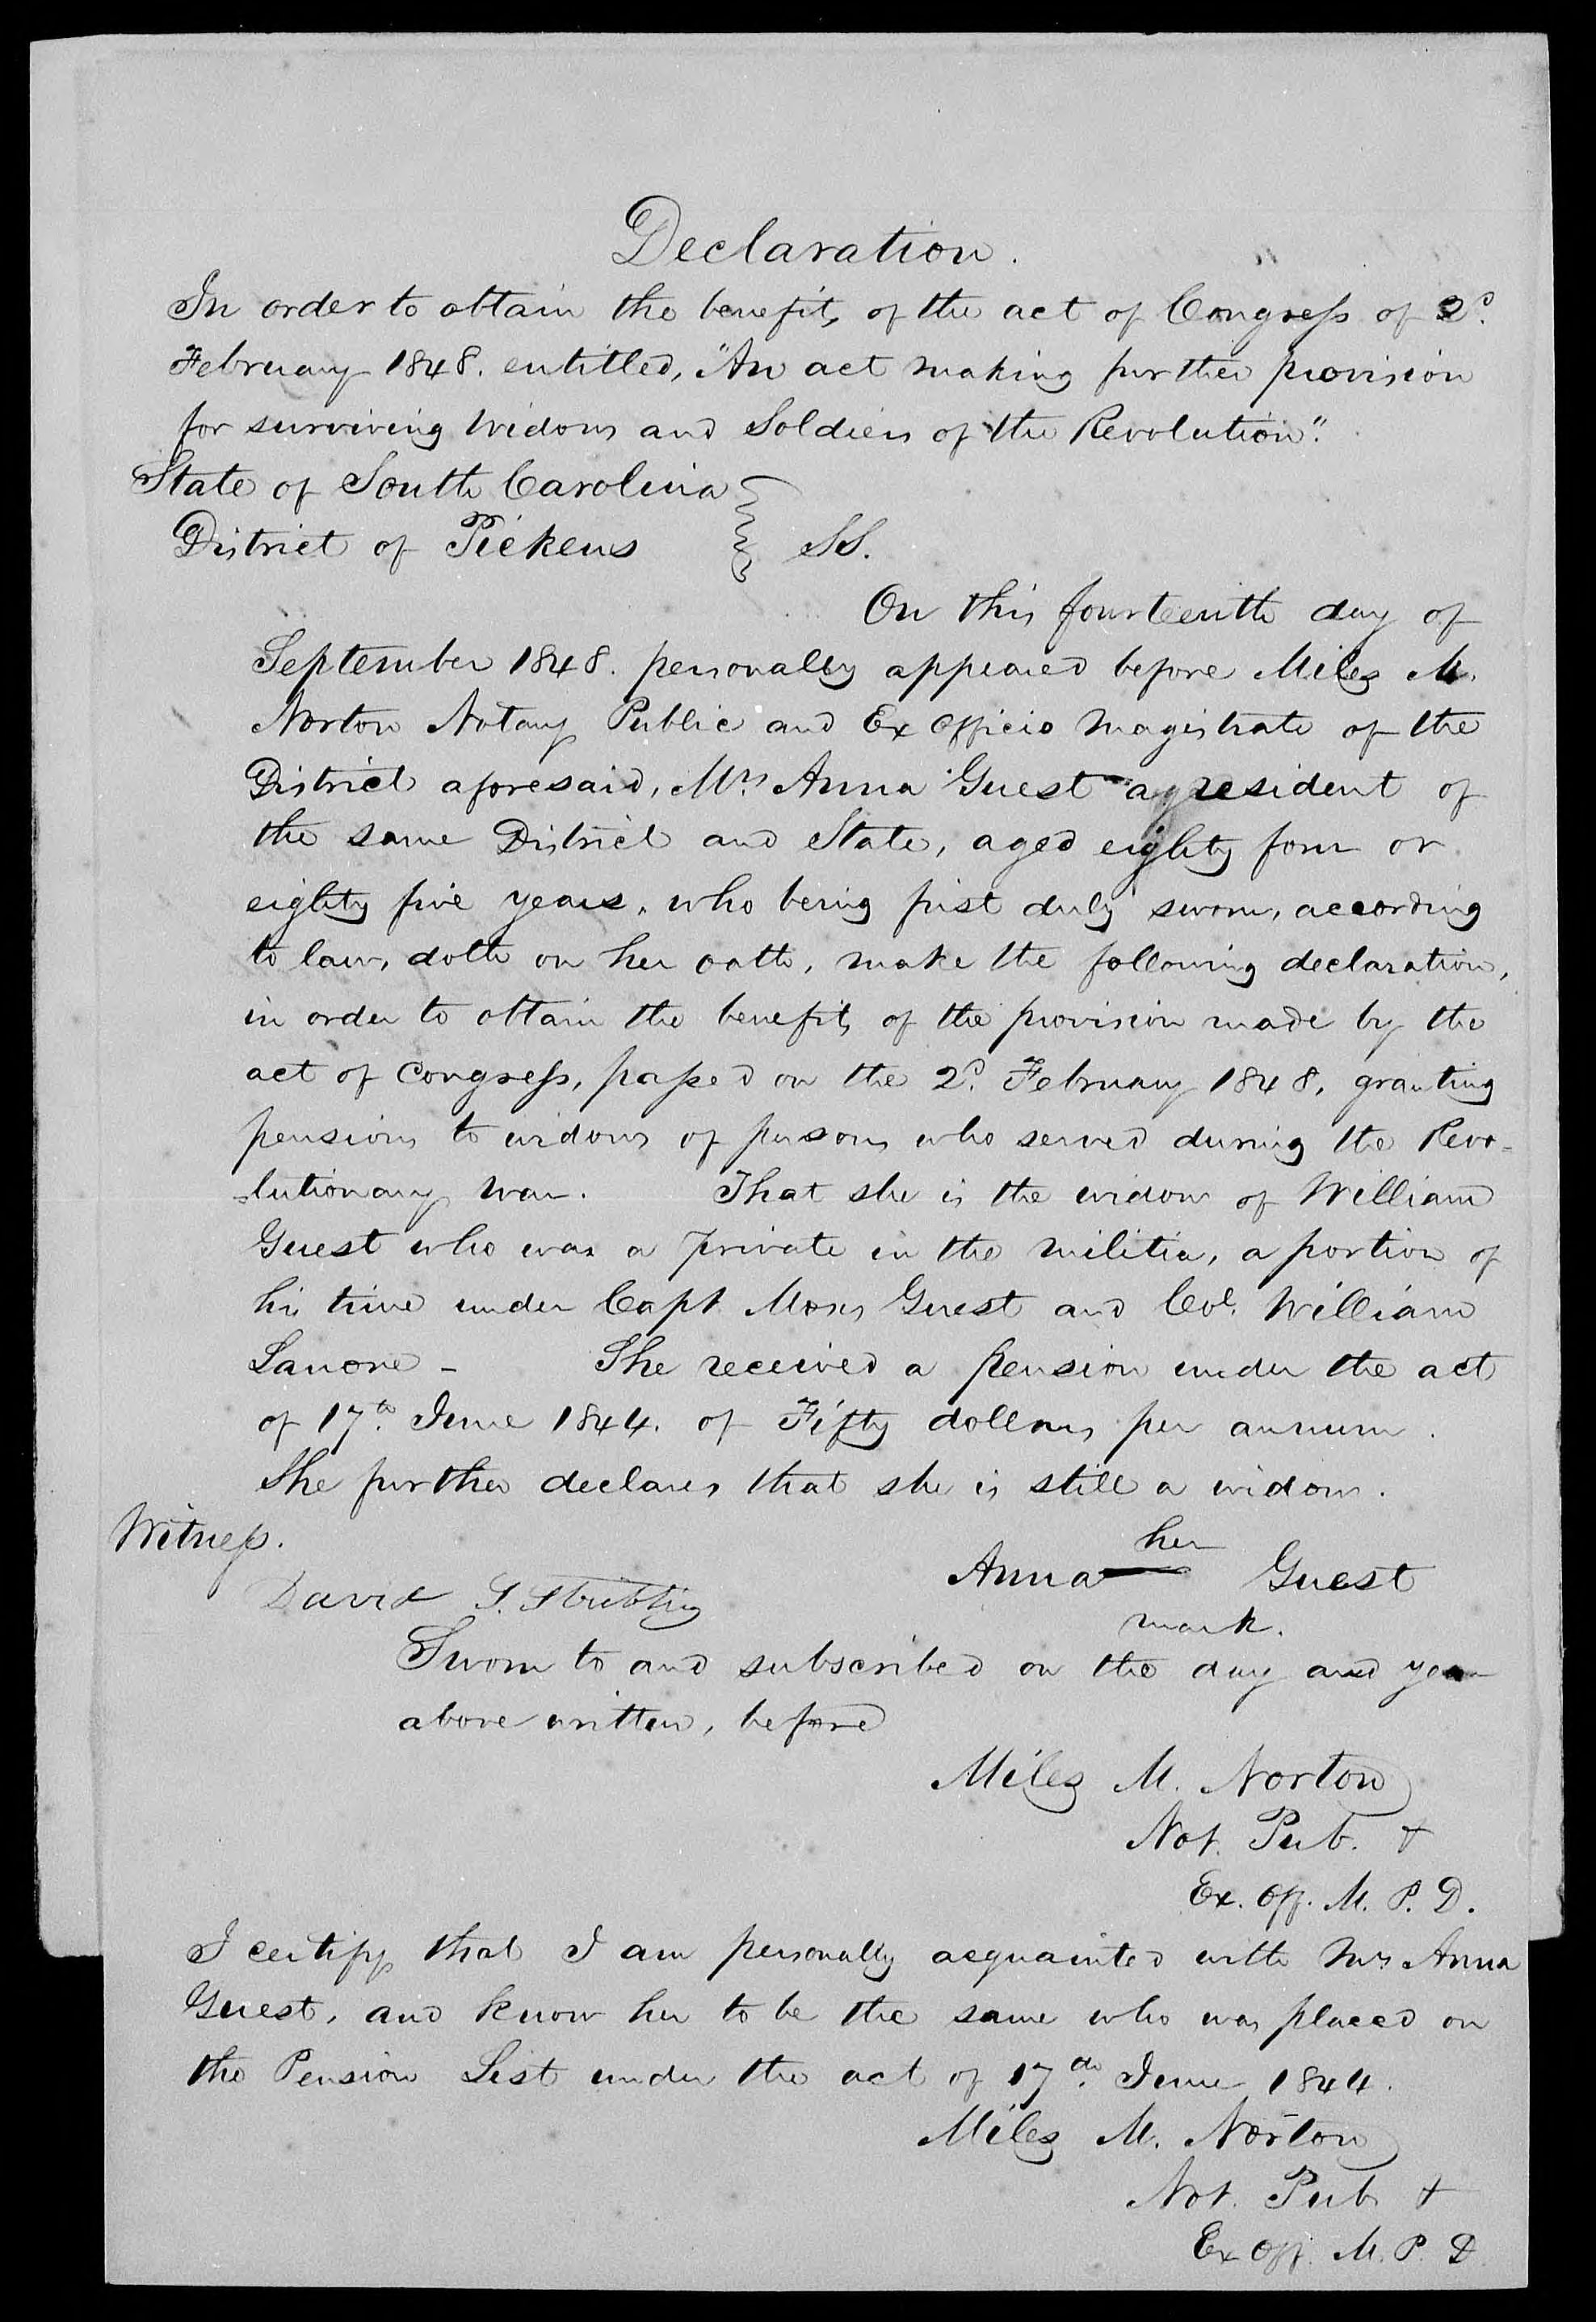 Declaration.
In order to obtain the benefits of the act of Congress of 2d.
February 1848. entitled, "An act making further provision
for surviving Widows and Soldiers of the Revolution".
State of South Carolina
District of Pickens } SS.
On this fourteenth day of
September 1848. personally appeared before Miles M.
Norton Notary Public and Ex officio Magistrate of the
District aforesaid, Mrs. Anna Guest a resident of
the same District and State, aged eighty four or
eighty five years, who being first duly sworn, according
to law, doth on her oath, make the following declaration,
in order to obtain the benefits of the provision made by the
act of Congress, passed on the 2d. February 1848, granting
pensions to widows of persons who served during the Revo-
lutionary War. That she is the widow of William
Guest who was a private in the militia, a portion of
his time under Capt Moses Guest and Col. William
Lanore - She received a pension under the act
of 17th. June 1844. of Fifty dollars per annum.
She further declares that she is still a widow.
Witness.
her
Anna Guest
David S. Stribling
mark.
Sworn to and subscribed on the day and year
above written, before
Miles M. Norton
Not. Pub. &
Ex. Off. M. P. D.
I certify that I am personally acquainted with Mrs Anna
Guest, and know her to be the same who was placed on
the Pension List under the act of 17th. June 1844.
Miles M. Norton
Not. Pub &
Ex Off. M. P. D